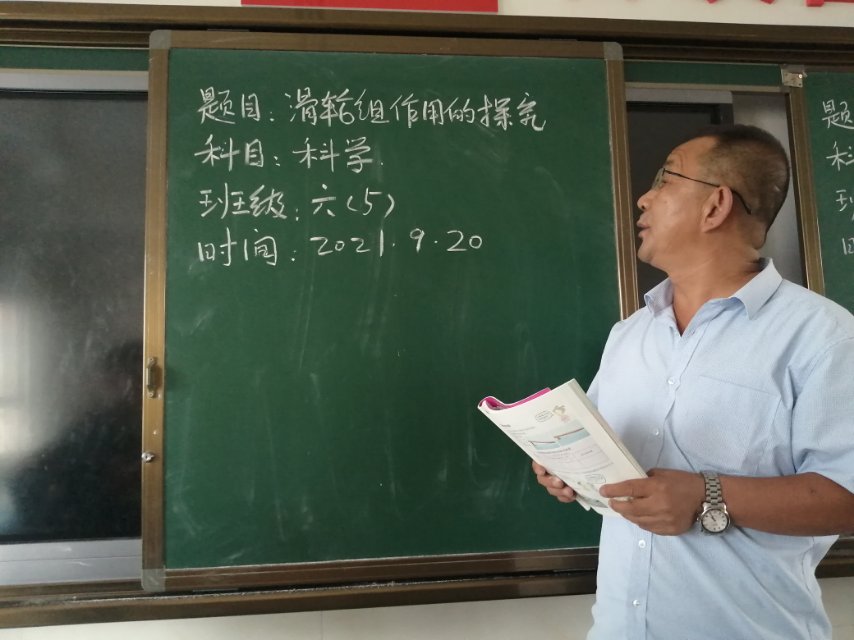 题目：滑轮组作用的探究
科目：科学.
班级：六(5)
时间：2021.9.20
题
科